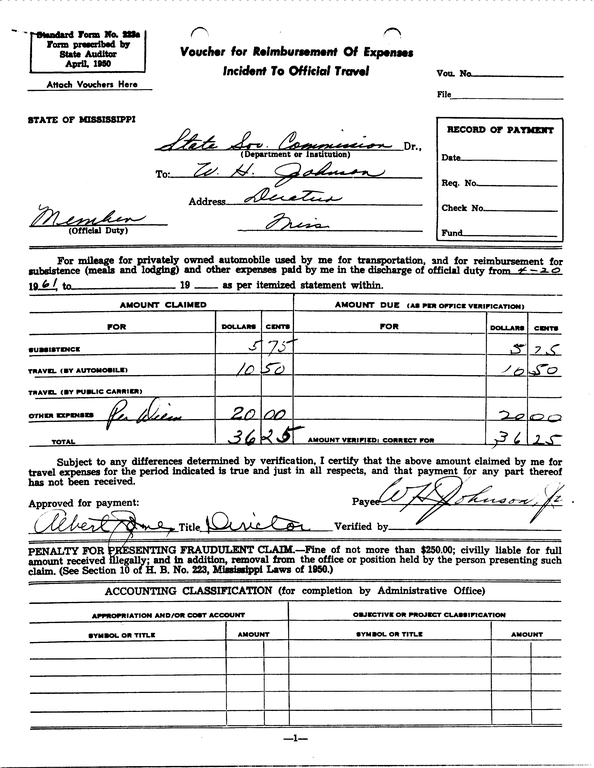 Standard Form No. 223a
Form prescribed by
State Auditor
April, 1950
Attach Vouchers Here
Voucher for Reimbursement Of Expenses
Incident To Official Travel
Vou. No.
File
STATE OF MISSISSIPPI
State Sov. Commission Dr.,
(Department or Institution)
To: W. H. Johnson
Address Decatur
Member Miss
(Official Duty)
RECORD OF PAYMENT
Date
Req. No.
Check No.
Fund
For mileage for privately owned automobile used by me for transportation, and for reimbursement for
subsistence (meals and lodging) and other expenses paid by me in the discharge of official duty from 4-20
1961 to 19 as per itemized statement within.
AMOUNT CLAIMED AMOUNT DUE (AS PER OFFICE VERIFICATION)
FOR DOLLARS CENTS FOR DOLLARS CENTS
SUBSISTENCE 5 75 5 75
TRAVEL (BY AUTOMOBILE) 10 50 10 50
TRAVEL (BY PUBLIC CARRIER)
OTHER EXPENSES Per Diem 20 00 20 00
TOTAL 36 25 AMOUNT VERIFIED: CORRECT FOR 36 25
Subject to any differences determined by verification, I certify that the above amount claimed by me for
travel expenses for the period indicated is true and just in all respects, and that payment for any part thereof
has not been received.
Approved for payment: Payee W H Johnson, Jr.
Albert Jones Title Director Verified by
PENALTY FOR PRESENTING FRAUDULENT CLAIM.—Fine of not more than $250.00; civilly liable for full
amount received illegally; and in addition, removal from the office or position held by the person presenting such
claim. (See Section 10 of H. B. No. 223, Mississippi Laws of 1950.)
ACCOUNTING CLASSIFICATION (for completion by Administrative Office)
APPROPRIATION AND/OR COST ACCOUNT OBJECTIVE OR PROJECT CLASSIFICATION
SYMBOL OR TITLE AMOUNT SYMBOL OR TITLE AMOUNT
—1—